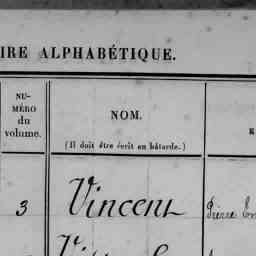 IRE ALPHABÉTIQUE.
NU-
MÉRO
du
volume.
NOM.
(Il doit être écrit en bâtarde.)
3 Vincent Pierre